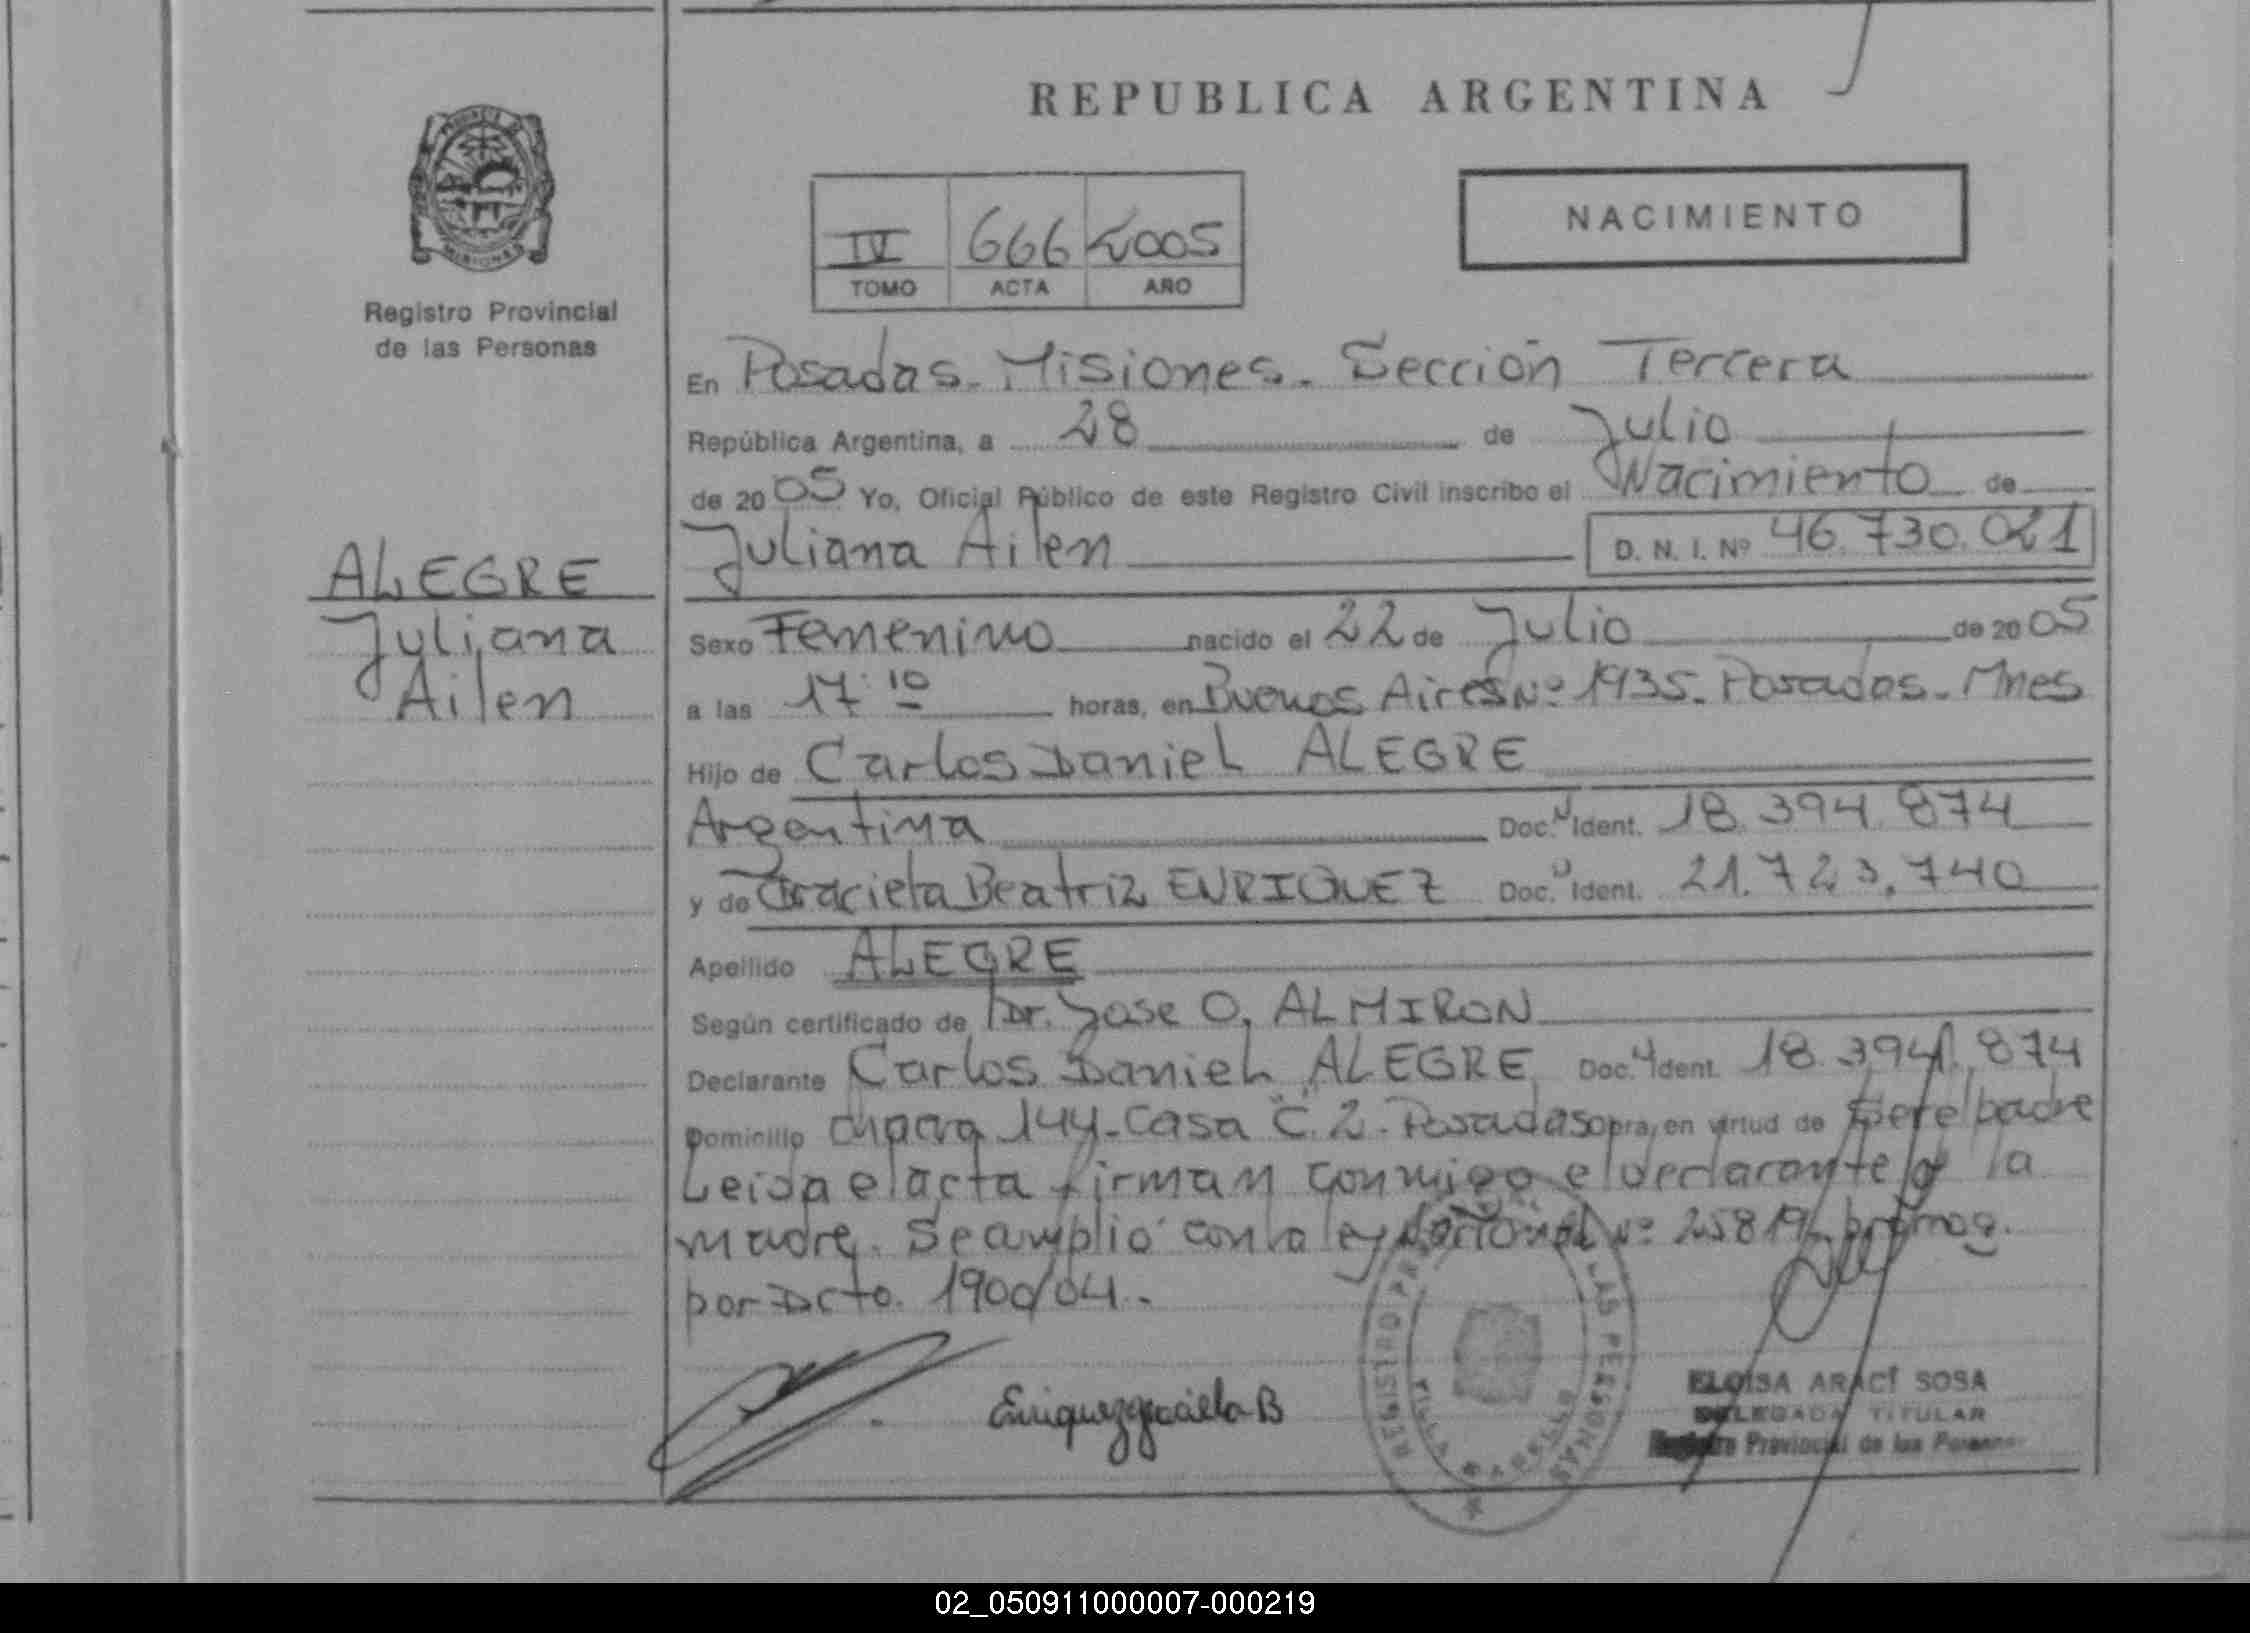 REPUBLICA ARGENTINA
PROVINCIA DE
MISIONES
Registro Provincial
de las Personas
NACIMIENTO
IV 666 2005
TOMO ACTA AÑO
En Posadas - Misiones - Sección Tercera
República Argentina, a 28 de Julio
de 2005 Yo, Oficial Público de este Registro Civil inscribo el Nacimiento de
Juliana Ailen D. N. I. Nº 46.730.021
ALEGRE
Juliana
Ailen
Sexo Femenino nacido el 22 de Julio de 2005
a las 17:10 horas, en Buenos Aires Nº 1935 - Posadas - Mnes
Hijo de Carlos Daniel ALEGRE
Argentina Doc. Ident. 18.394.874
y de Graciela Beatriz ENRIQUEZ Doc. Ident. 21.723.740
Apellido ALEGRE
Según certificado de Dr. Jose O. ALMIRON
Declarante Carlos Daniel ALEGRE Doc. Ident. 18.394.874
Domicilio chacra 144 - Casa "C" 2 - Posadas obra, en virtud de Ser el padre
Leida el acta firman conmigo el declarante y la
madre. Se amplió con la ley Nacional Nº 25819 promog.
por Dcto. 1900/04.-
Enriquez graciela B
REGISTRO PROVINCIAL DE LAS PERSONAS
VILLA CABELLO
ELOISA ARACI SOSA
DELEGADA TITULAR
Registro Provincial de las Personas
02_050911000007-000219